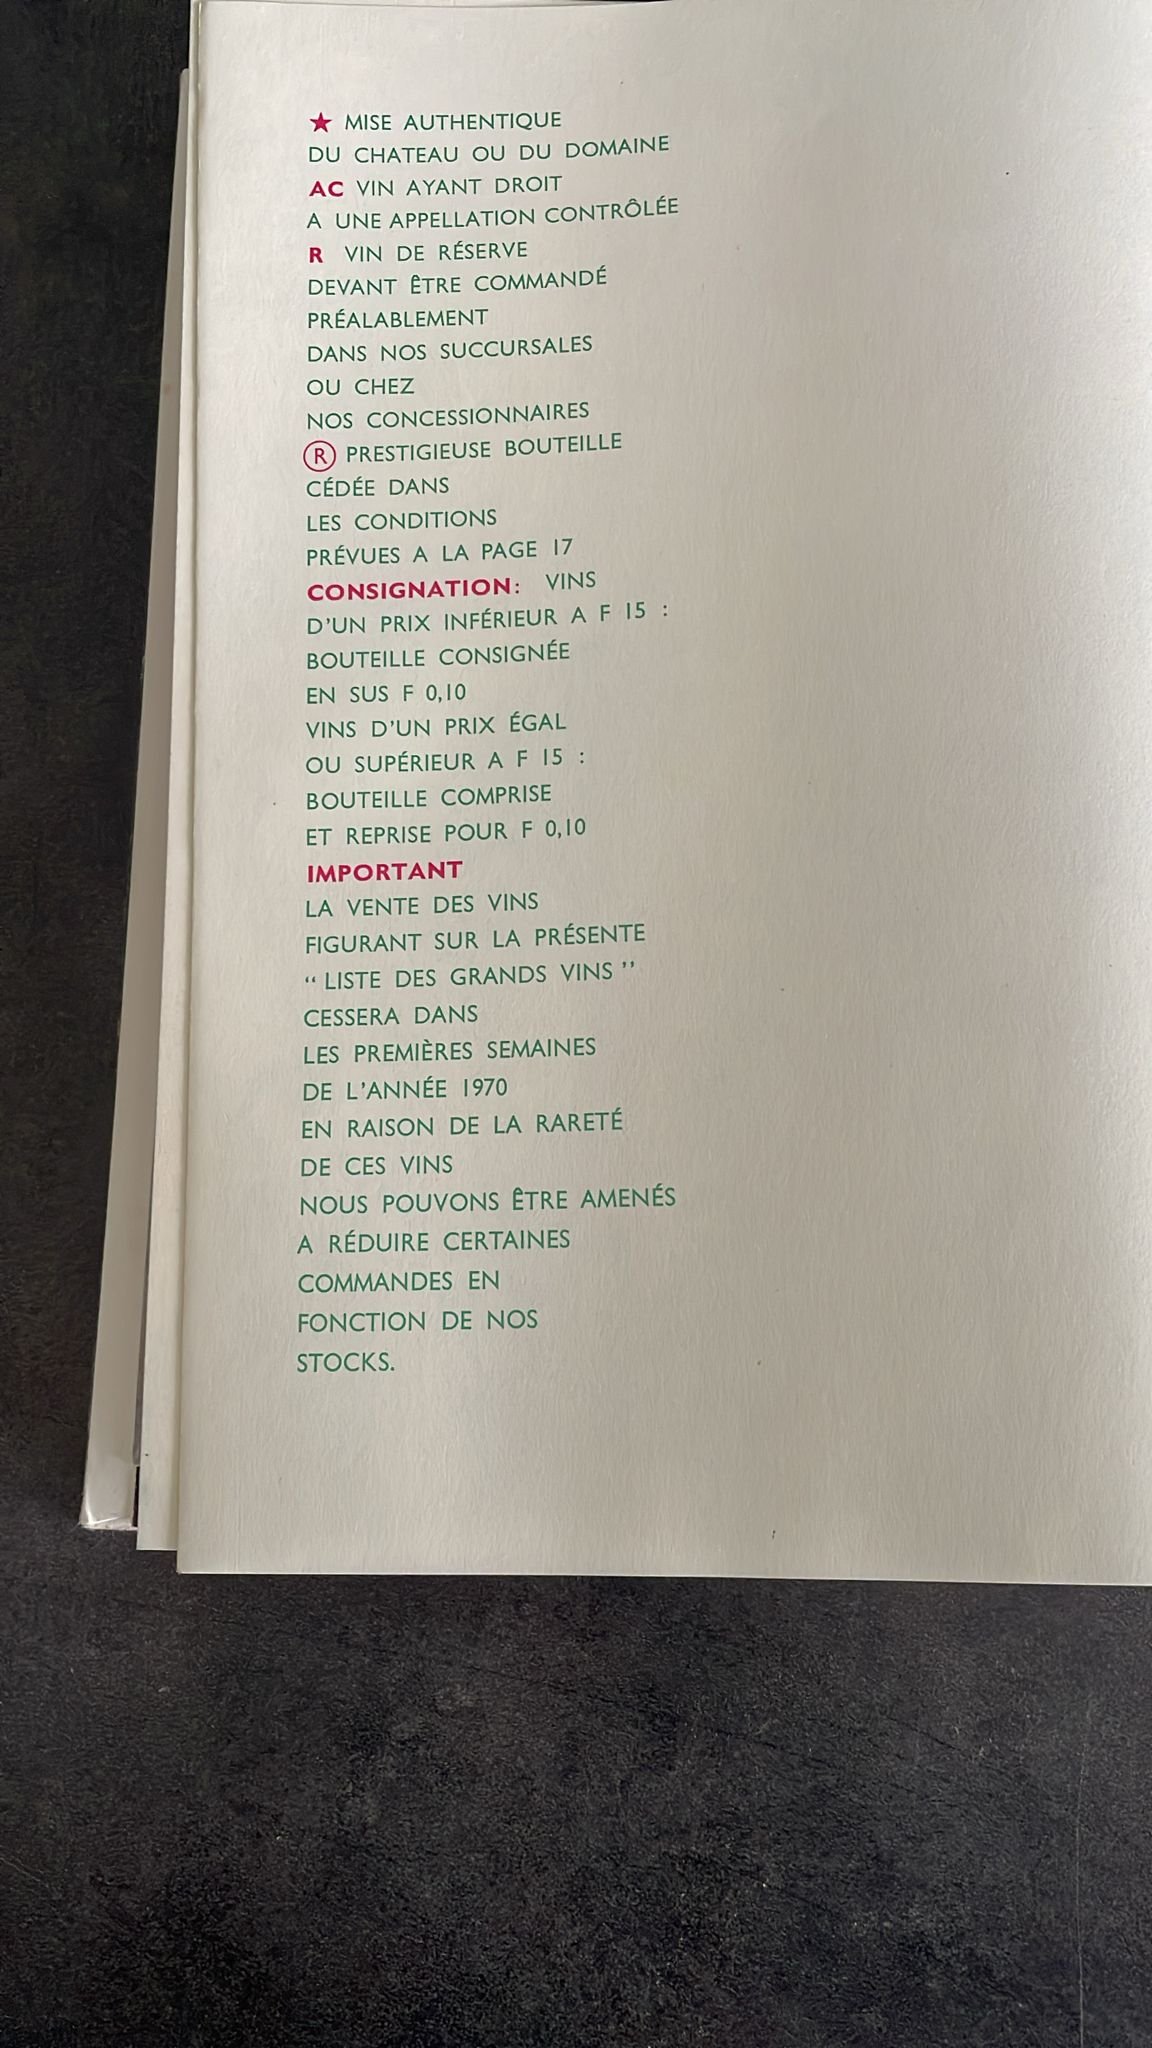 ★ MISE AUTHENTIQUE
DU CHATEAU OU DU DOMAINE
AC VIN AYANT DROIT
A UNE APPELLATION CONTRÔLÉE
R VIN DE RÉSERVE
DEVANT ÊTRE COMMANDÉ
PRÉALABLEMENT
DANS NOS SUCCURSALES
OU CHEZ
NOS CONCESSIONNAIRES
Ⓡ PRESTIGIEUSE BOUTEILLE
CÉDÉE DANS
LES CONDITIONS
PRÉVUES A LA PAGE 17
CONSIGNATION: VINS
D'UN PRIX INFÉRIEUR A F 15 :
BOUTEILLE CONSIGNÉE
EN SUS F 0,10
VINS D'UN PRIX ÉGAL
OU SUPÉRIEUR A F 15 :
BOUTEILLE COMPRISE
ET REPRISE POUR F 0,10
IMPORTANT
LA VENTE DES VINS
FIGURANT SUR LA PRÉSENTE
“ LISTE DES GRANDS VINS ”
CESSERA DANS
LES PREMIÈRES SEMAINES
DE L'ANNÉE 1970
EN RAISON DE LA RARETÉ
DE CES VINS
NOUS POUVONS ÊTRE AMENÉS
A RÉDUIRE CERTAINES
COMMANDES EN
FONCTION DE NOS
STOCKS.